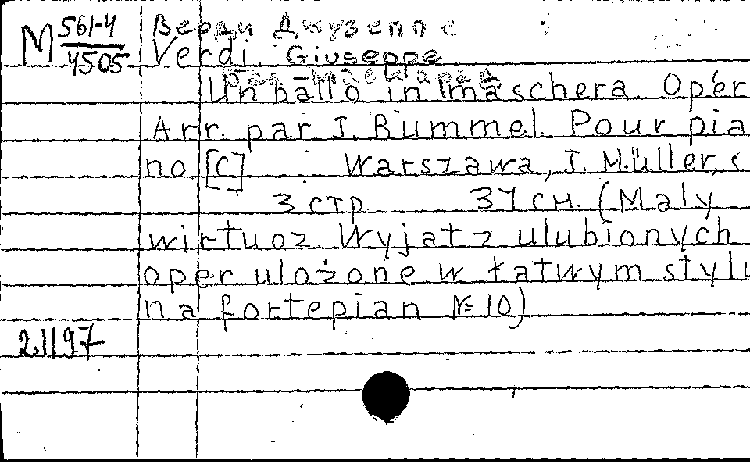 M 561-4
4505
Верди Джузеппе
Verdi. Giuseppe
Бал-маскарад
Un ballo in maschera. Oper
Arr. par J. Rummel. Pour pia
no [С] Warszawa, J. Müller, с
3 стр 37 см. (Maly
wirtuoz. Wyjat z ulubionych
oper ulożone w łatwym stylu
na fortepian № 10)
2.1197